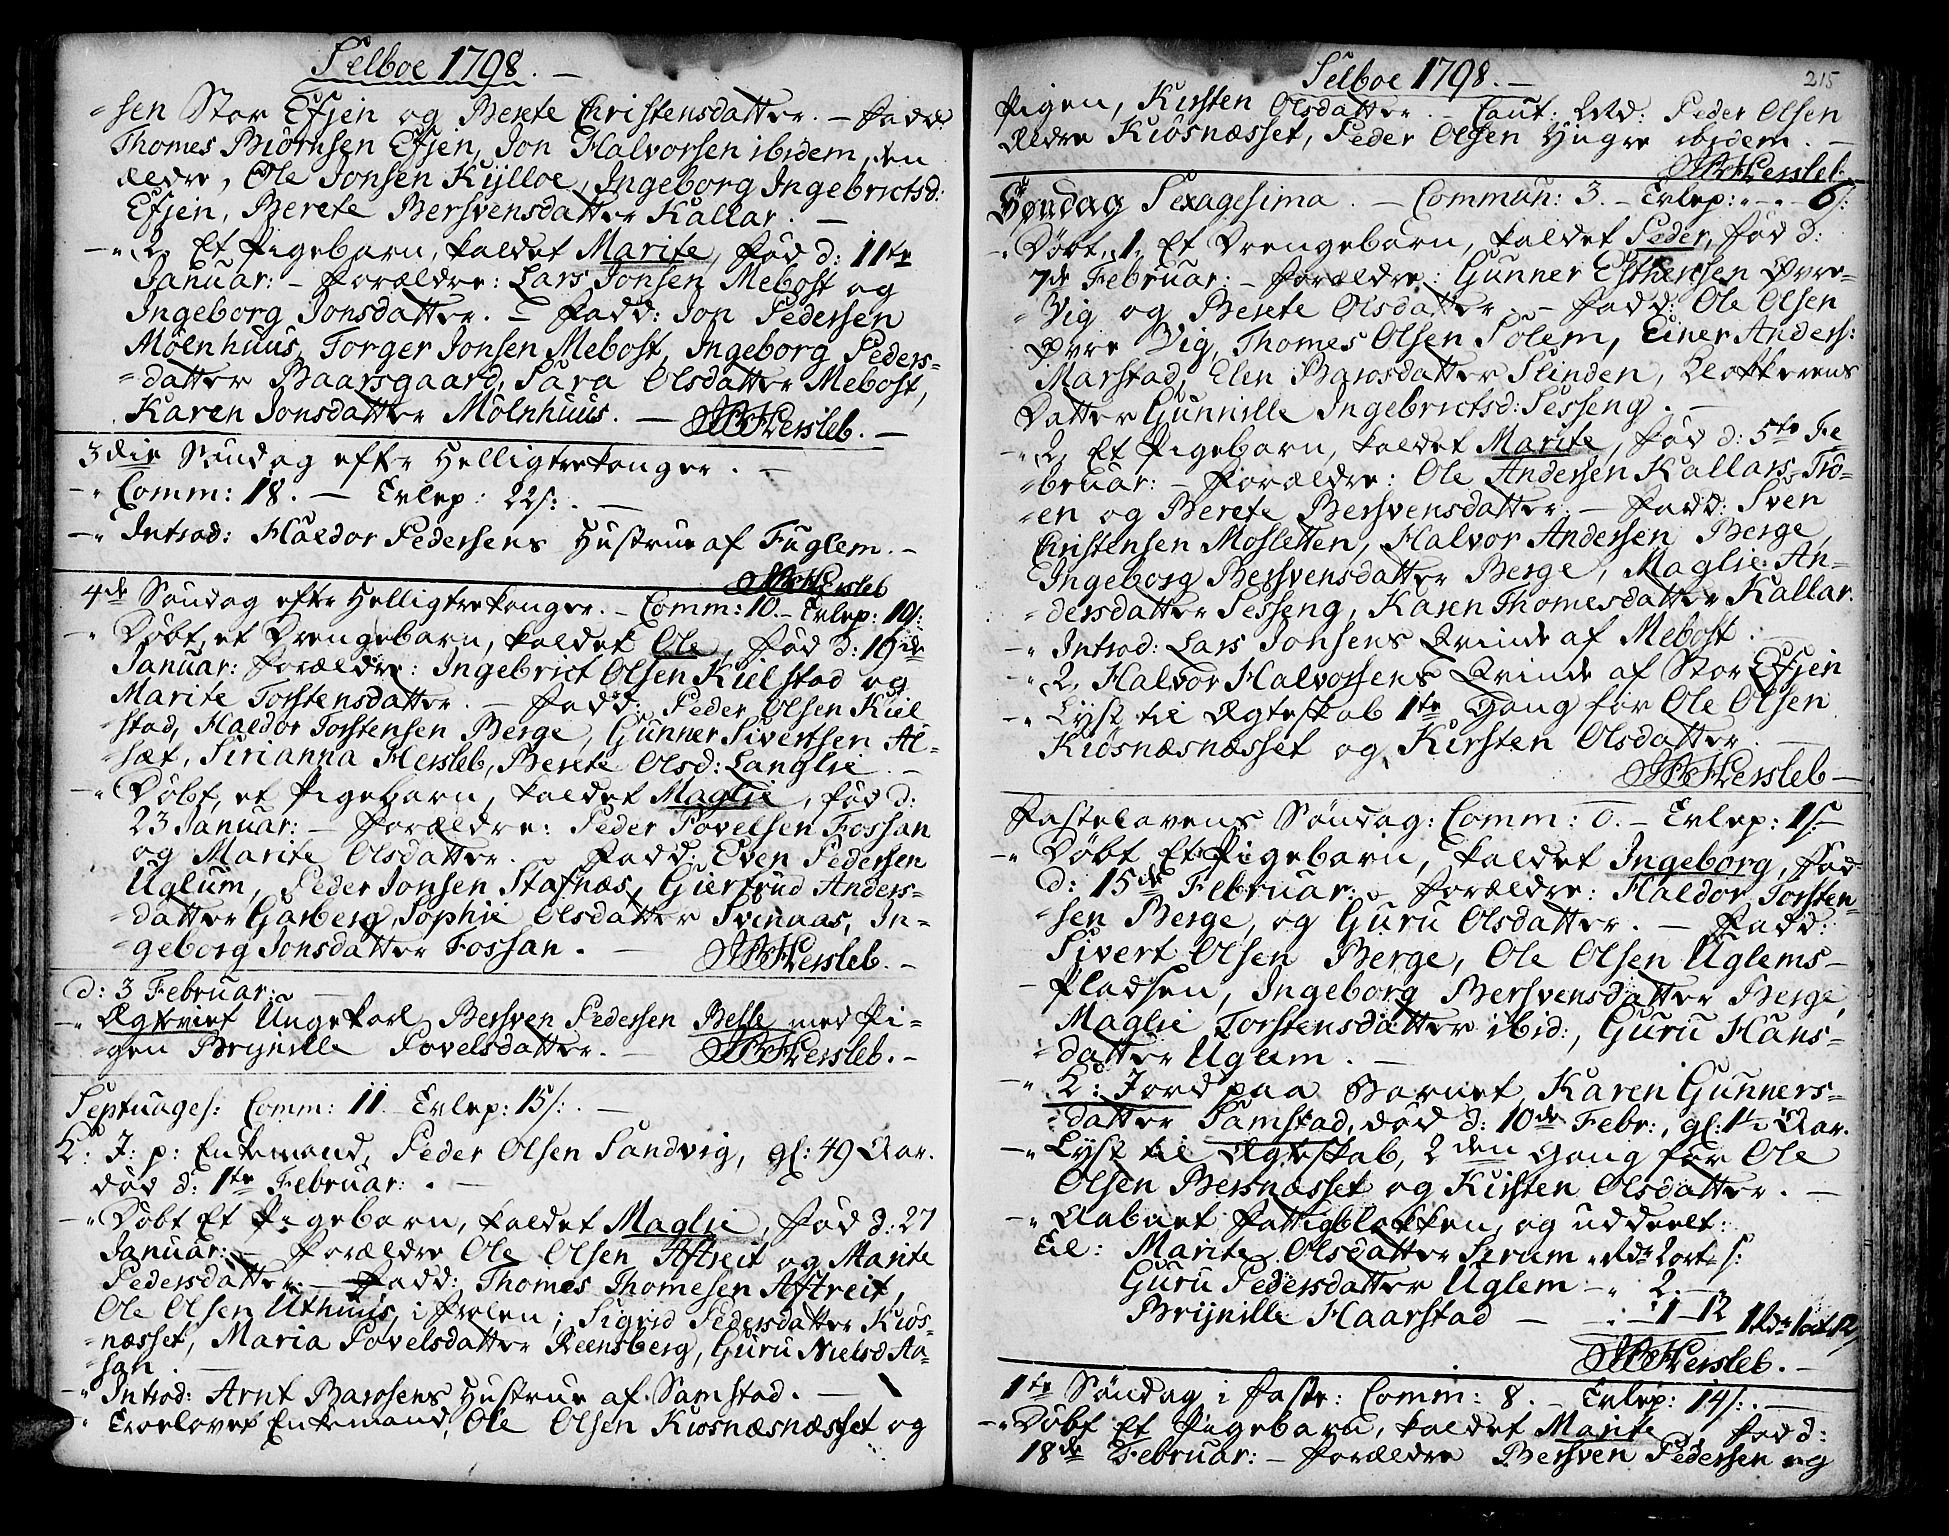 Selboe 1798. —
-sen Stor Efsjen og Berete Christensdatter. — Fadd:
Thomes Biörnsen Efsjen, Jon Halvorsen ibidem, den
Ældre, Ole Jonsen Kylloe, Ingeborg Ingebrictsd:
Efsjen, Berete Bersvensdatter Kallar. —
-" 2, Et Pigebarn, kaldet Marite, fød d: 11te
Januar: — Forældre: Lars Jonsen Mebost og
Ingeborg Jonsdatter. — Fadd: Jon Pedersen
Mölnhuus, Torger Jonsen Mebost, Ingeborg Peders-
-datter Baarsgaard, Sara Olsdatter Mebost,
Karen Jonsdatter Mölnhuus. — Hersleb. —
3die Søndag efter Helligtrekonger. —
-" Comm: 18. — Erlep: 22 s:. —
-" Introd: Haldor Pedersens Hustrue af Fuglem. —
Hersleb
4de Søndag efter Helligtrekonger. — Comm: 10. — Erlep: 19 s:
-" Døbt, et Drengebarn, kaldet Ole, fød d: 19de
Januar: Forældre: Ingebrict Olsen Kielstad og
Marite Torstensdatter. — Fadd: Peder Olsen Kiel
stad, Haldor Torstensen Berge, Gunner Sivertsen Al-
-sæt, Sirianna Hersleb, Berete Olsd: Langlie. —
-" Døbt, et Pigebarn, kaldet Maglie, fød d:
23 Januar: — Forældre: Peder Povelsen Fossan
og Marite Olsdatter. — Fadd: Even Pedersen
Uglum, Peder Jonsen Stafnæs, Giertrud Anders-
-datter Garberg, Sophie Olsdatter Svinaas, In-
-geborg Jonsdatter Fossan. — Hersleb. —
d: 3 Februar: —
-" Ægteviet Ungekarl Bersven Pedersen Belle med Pi-
-gen Brynille Povelsdatter. — Hersleb. —
Septuages: Comm: 11. Erlep: 15 s:. —
K: J: p: Enkemand, Peder Olsen Sandvig, gl: 49 Aar.
død d: 1te Februar: . —
-" Døbt Et Pigebarn, kaldet Maglie, fød d: 27
Januar: — Forældre Ole Olsen Aftreit og Marite
Pedersdatter. — Fadd: Thomes Thomesen Aftreit,
Ole Olsen Uthuus, i Selen; Sigrid Pedersdatter Kiös-
-næsset, Maria Povelsdatter Reensberg, Guru Nielsd Aa-
-san. —
-" Introd: Arnt Baroosens Hustrue af Samstad. —
" Troelovet Enkemand, Ole Olsen Kiösnæsnæsset og
Selboe 1798. — 215
Pigen, Kirsten Olsdatter. — Caut: Peder Olsen
Ældre Kiösnæsset, Peder Olsen Yngre ibidem. —
Hersleb.
Søndag Sexagesima. — Commun: 3. — Erlep: - - 6 s:
-" Døbt, 1, Et Drengebarn, kaldet Peder, fød d:
7de Februar: — Forældre: Gunner Esthensen Øvre-
-Vig og Berete Olsdatter. — Fadd: Ole Olsen
Øvre Vig, Thomes Olsen Solem, Einer Anders:
Marstad, Elen Baroosdatter Slinden, Klokkerens
Datter Gunnille Ingebrictsd: Sesseng. —
-" 2, Et Pigebarn, kaldet Marite, fød d: 5te Fe
-bruar: — Forældre: Ole Andersen Kallars-Trö-
-en og Berete Bersvensdatter. — Fadd: Sven
Christensen Mosletten, Halvor Andersen Berge,
Ingeborg Bersvensdatter Berge, Maglie An-
-dersdatter Sesseng, Karen Thomesdatter Kallar.
-" Introd: Lars Jonsens Qvinde af Mebost. —
-" 2, Halvor Halvorsens Qvinde af Stor Efsjen
-" Lyst til Ægteskab 1te Gang for Ole Olsen
Kiösnæsnæsset og Kirsten Olsdatter. —
Hersleb —
Fastelavens Søndag: Comm: 0. — Erlep: 1 s: —
-" Døbt Et Pigebarn, kaldet Ingeborg, fød
d: 15de Februar. — Forældre: Haldor Torsten-
-sen Berge, og Guru Olsdatter. — Fadd:
Sivert Olsen Berge, Ole Olsen Uglems-
-Pladsen, Ingeborg Bersvensdatter Berge,
Maglie Torstensdatter ibid:, Guru Hans-
-datter Uglem. —
-" K: Jord paa Barnet Karen Gunners-
-datter Samstad, død d: 10de Febr:, gl: 1½ Aar.
-" Lyst til Ægteskab, 2den Gang for Ole
Olsen Bersnæsset og Kirsten Olsdatter. —
-" Aabnet Fattigblokken, og uddeelt:
Til: Marite Olsdatter Serum " Rdr 2 ort - s:
Guru Pedersdatter Uglem — " 2. —
Brynille Haarstad — " 1 — 12 1 Rdr 1 ort 12
Hersleb. —
1te Søndag i Faste: Comm: 8. — Erlep: 14 s:. —
-" Døbt Et Pigebarn, kaldet Marite, fød d:
18de Februar: — Forældre Bersven Pedersen og